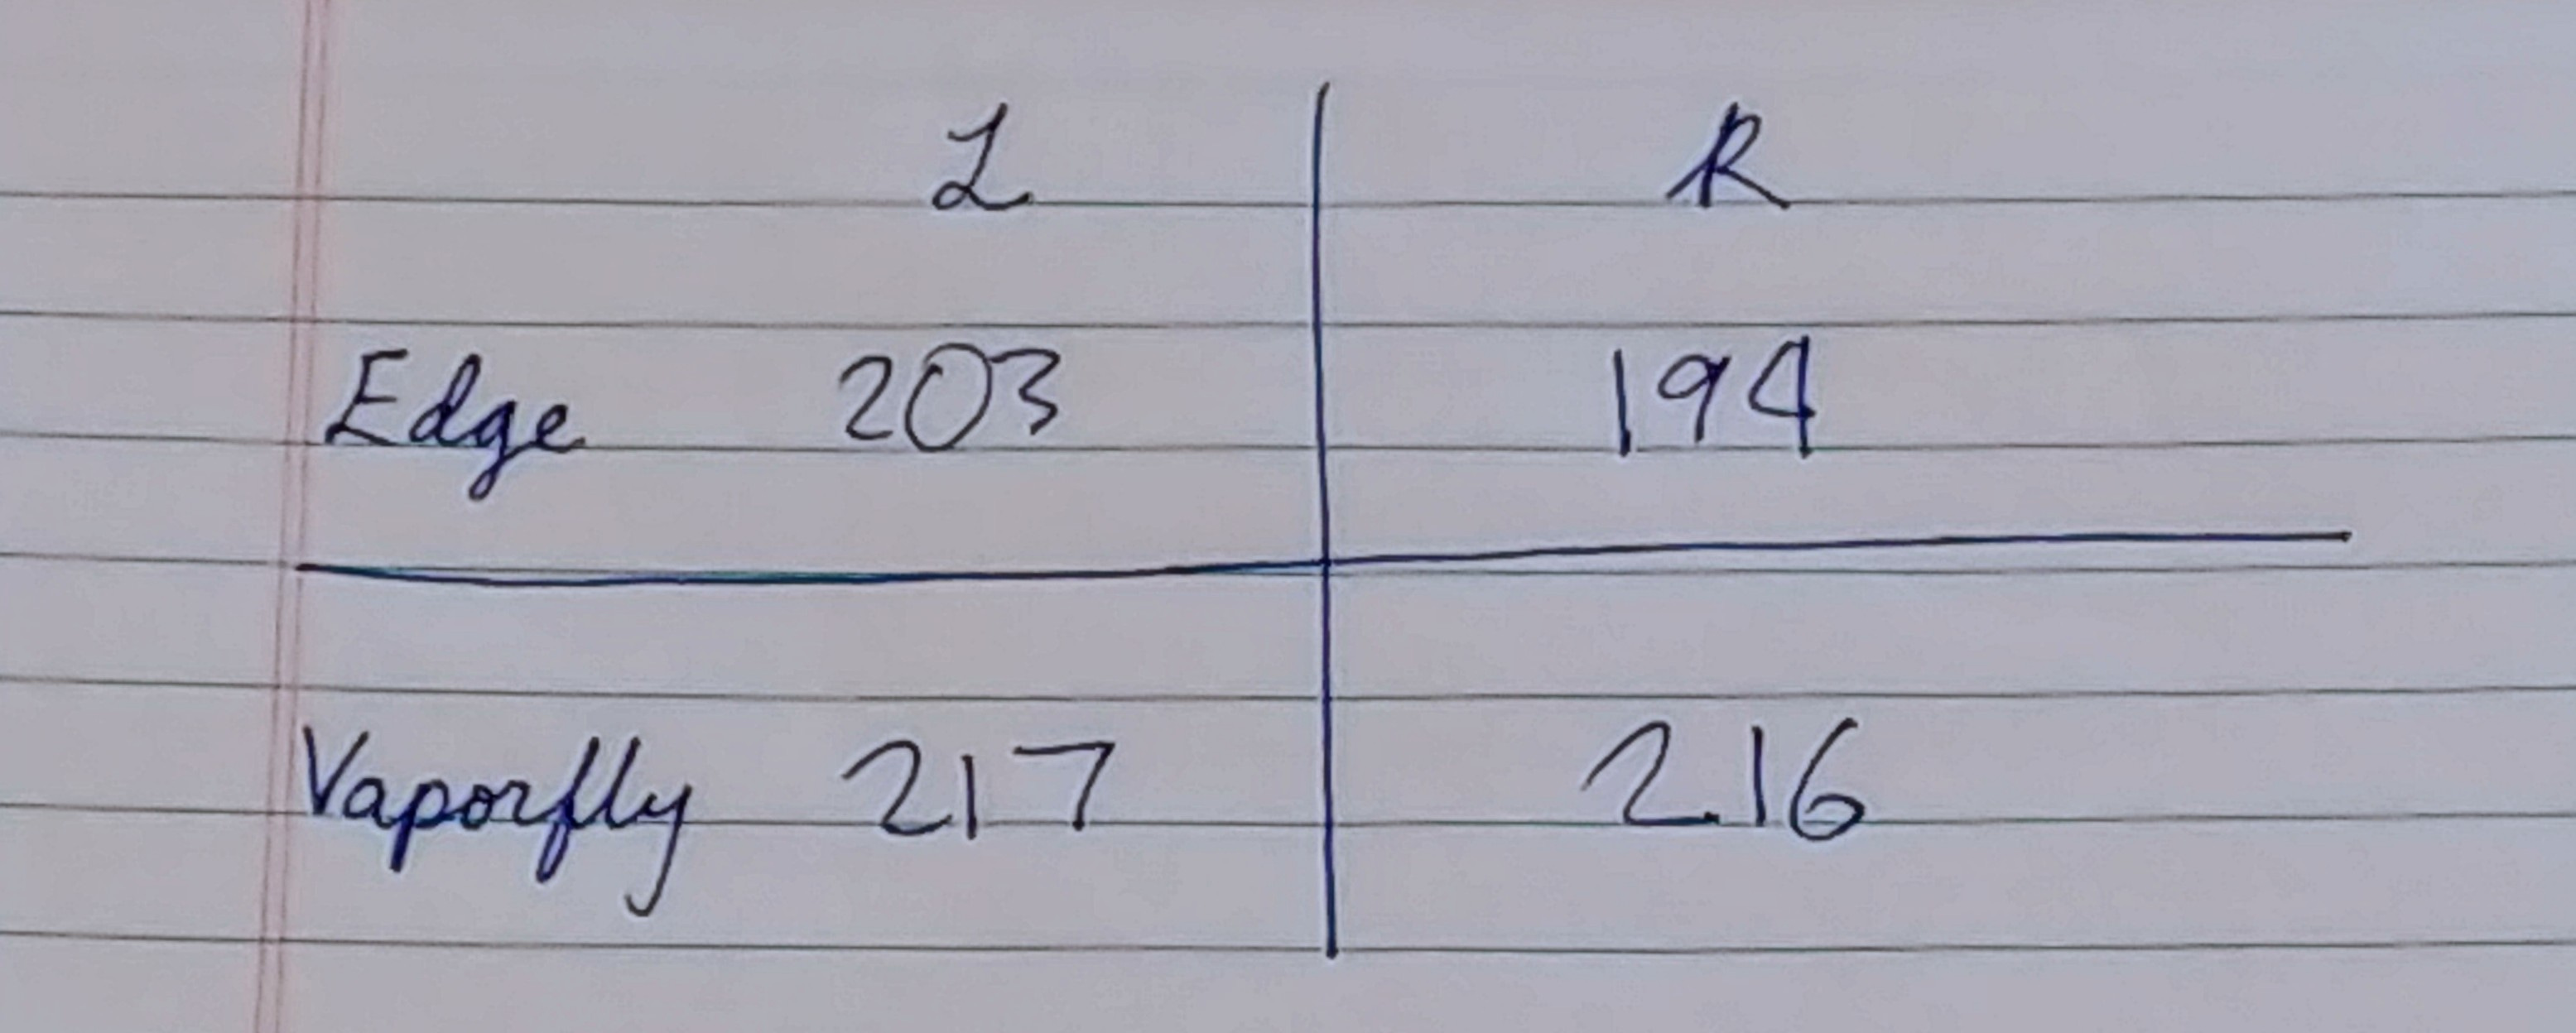 L R
Edge 203 194
Vaporfly 217 216